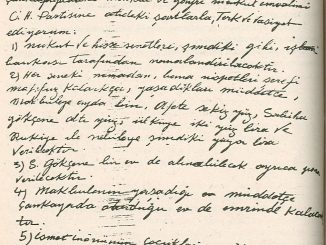 C.H. Partisine atideki şartlarla, terk ve vasiyet
ediyorum:
1) nukut ve hisse senetleri, şimdiki gibi, iş
bankası tarafından nemalandırılacaktır.
2) Her seneki nemadan, bana nispetleri şerefi
mahfuz kaldıkça, yaşadıkları müddetçe,
Makbuleye ayda bin, Afete sekiz yüz, Sabiha
Gökçene altı yüz, Ülküye iki yüz lira ve
Rukiye ile Nebileye şimdiki yüzer lira
verilecektir.
3) S. Gökçene bir ev de alınabilecek ayrıca para
verilecektir.
4) Makbulenin yaşadığı müddetçe
Çankayada oturduğu ev de emrinde kalacak
tır.
5) İsmet İnönünün çocukları